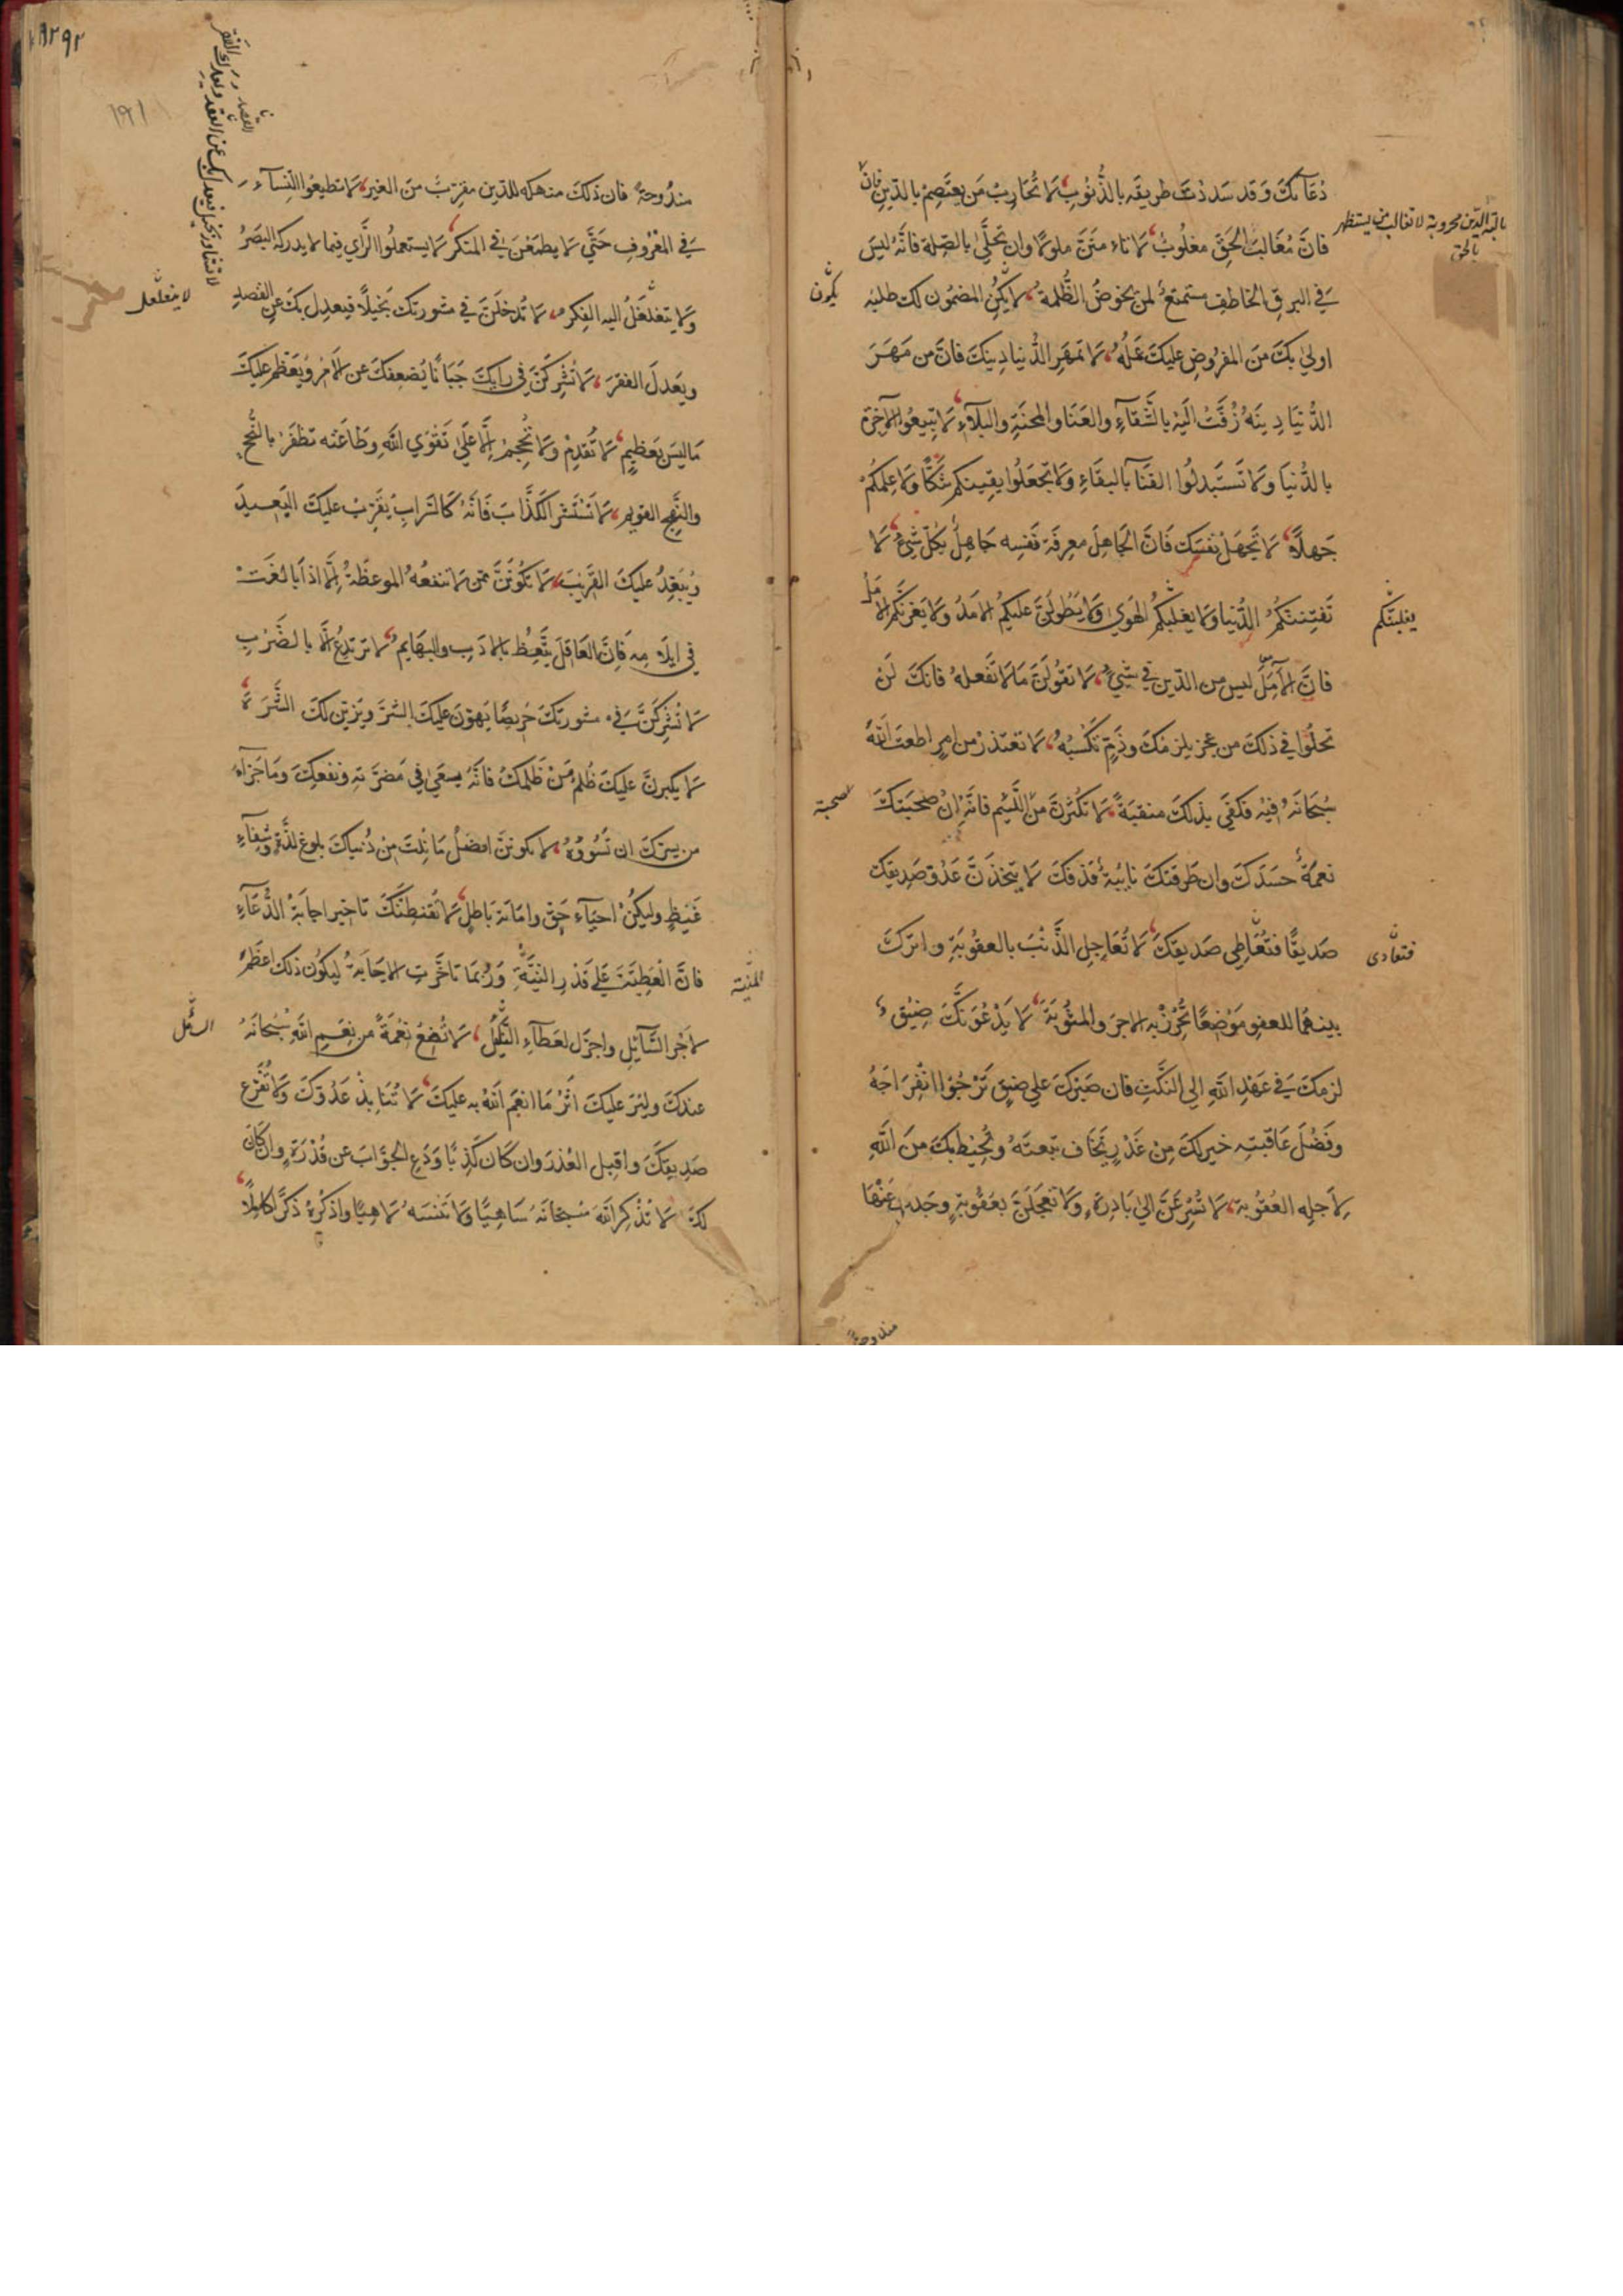 دُعَائكَ وَقَد سَدَدْتَ طريقَه بالذُّنُوبِ، لَا تُحَارِبْ مَن يعتَصِمْ بالدّينِ فانّ
فانَّ مُغَالبَ الحَقّ مغلُوبٌ، لا تاء منَنَّ ملومًا وان تحلّى بالصّلة فانّهُ ليسَ
في البرقِ الخاطفِ مستمتعٌ لمن يخوضُ الظّلمة، لا يكُنِ المضمُون لك طلبُه
اولى بكَ منَ المفرُوضِ عليكَ عَمَلُهُ، لَا تمهَرِ الدُّنيا دينَكَ فانّ من مَهَرَ
الدُّنيَا دينَهُ زُفّتْ اليْهِ بالشَّقاءِ والعَنَا والمحنَةِ والبلآءِ، لَا تبيعُوا الآخِرَة
بالدُّنيَا ولَا تَستَبدلُوا الفنَآ بالبقَاءِ ولَا تجعَلُوا يقِينكم شَكًّا وَلَا عِلمَكُمْ
جَهلًا، لَا تجهَلْ نفسَك فانّ الجَاهلَ معرِفَةَ نَفسِه جَاهِلٌ بكُلّ شيءٍ، لَا
تَفتِننَّكُمُ الدُّنيا ولَا يغلبكُم الهَوى ولَا يَطُولَنَّ عليكمُ الامَدُ ولَا يَغرّنّكم الامَلُ
فانّ الامَلَ ليس من الدّين في شيءٍ، لَا تقُولَنَّ مَا لَا تَفعلهُ فانكَ لَنْ
تخلُوا في ذلكَ من عجز يلزمُكَ وذَمٍّ تكسِبُهُ، لَا تعتذرْ من امرٍ اطعتَ اللهَ
سُبحَانَهُ فيْهِ فكفَى بذلكَ منقبَةً، لَا تكثرنَّ منَ اللّئيم فانّهُ انْ صحبَتكَ
نعمَةٌ حسَدَكَ وان طرقتكَ نايبَةٌ قذفكَ لَا تتخذَنَّ عَدُوّ صَديقِك
صَديقًا فتُعَاطِى صَديقكَ، لَا تُعَاجِلِ الذّنْبَ بالعقُوبَةِ واترُكْ
بينهُمَا للعفوِ مَوْضِعًا تُحْرِزْ به الاجرَ والمثُوبَةَ، لَا يَدْعُوَنَّكَ ضِيْقٌ
لزمكَ في عَهْدِ اللهِ الى النّكثِ فان صَبْرَكَ على ضيقٍ تَرْجُوْا انْفِرَاجَهُ
وفَضْلَ عَاقبتِه خير لكَ مِنْ غَدْرٍ تَخَاف تبعتَهُ وتُحِيْط بكَ منَ اللهِ
لِاَجلِه العُقُوبة، لَا تُسْرِعَنَّ الى بَادِرَةٍ ولَا تَعجَلَنَّ بعقُوبَةٍ وجَدت عَنْهَا
بالدّين محروبة لا تغالب من يستظهر
بالحق
يكونن
يغلبنّكم
صحبته
فتعادى
مندوحة
مندُوحةً فان ذلكَ منهكه للدّين مقرّبٌ منَ الغير، لَا تطيعُوا النّسآءَ
في المَعْروفِ حَتّى لَا يطمَعْنَ في المنكر، لَا يستعملُوا الرّأى فيما لا يدركه البصَرُ
ولَا يتغلغَلُ اليه الفِكر، لَا تُدخلَنَّ في مشورتك بَخيلًا فيعدِل بكَ عن القصدِ
ويَعدكَ الفقرَ، لَا تُشْرِكنَّ في رايكَ جَبَانًا يُضعِفكَ عن الامْرِ ويُعَظّمْ عليكَ
مَا ليسَ بعَظيمٍ، لَا تُقدِمْ ولَا تُحْجِمْ اِلّا علَى تَقْوَى اللهِ وطَاعَتْه تظفَرْ بالنُّجحِ
والنّهجِ القويم، لَا تَسْتَشرِ الكَذّابَ فَانّهُ كالسّرابِ يُقَرّبْ عليكَ البَعيدَ
ويُبَعّدُ عليكَ القَريبَ، لَا تكُونَنَّ ممّن لَا تنفعُهُ الموعظةُ اِلّا اذا بالغَتْ
في ايلَامِه فانَّ العَاقلَ يتّعِظُ بالادَبِ والبهَايم، لا ترتدِعُ الّا بالضَّرْبِ
لَا تُشرِكَنَّ في مشورتكَ حَرِيصًا يَهوّن عليكَ الشّرّ ويُزيّن لكَ الشَّرَه
لَا يكبرنَّ عليكَ ظُلمُ مَنْ ظَلَمكَ فانّهُ يسعَى في مَضرّته ونفعِكَ ومَا جَزاءُ
من يسرّكَ ان تَسُوْؤهُ، لا يكوننَّ افضلُ مَا نِلتَ مِنْ دُنياكَ بلوغ لذّةٍ وشفآء
غَيْظٍ وليكُنْ احيآء حَقٍّ وامَاتة بَاطِلٍ، لَا يُقنطنَّكَ تاخير اجابَةْ الدُّعَآءِ
فانَّ الْعَطِيّةَ علَى قَدْرِ النيَّةِ وَرُبمَا تاخّرتِ الاجَابَةُ ليكُون ذلك اعظَمَ
لاجْرِ السَّآئلِ واجزَل لعَطآءِ النَّيْلِ، لَا تُضِعْ نِعْمَةً من نِعَمِ اللهِ سُبْحانَهُ
عندَكَ وليُرَ عليكَ اثَرُ مَا انعَمَ اللهُ به عليكَ، لَا تُنَابِذْ عَدُوّكَ ولَا تُقَرّع
صَديقكَ واقبلِ العُذرَ وان كَان كَذِبًا وَدَعِ الجوَابَ عن قُدْرَةٍ وان كَانَ
لكَ لَا تذْكرِ اللهَ سُبحَانَهُ سَاهِيًا ولَا تَنْسَهُ لَاهِيًا واذكُرْهُ ذكْرًا كامِلًا
لا يتغلغل
المنية
١٩١